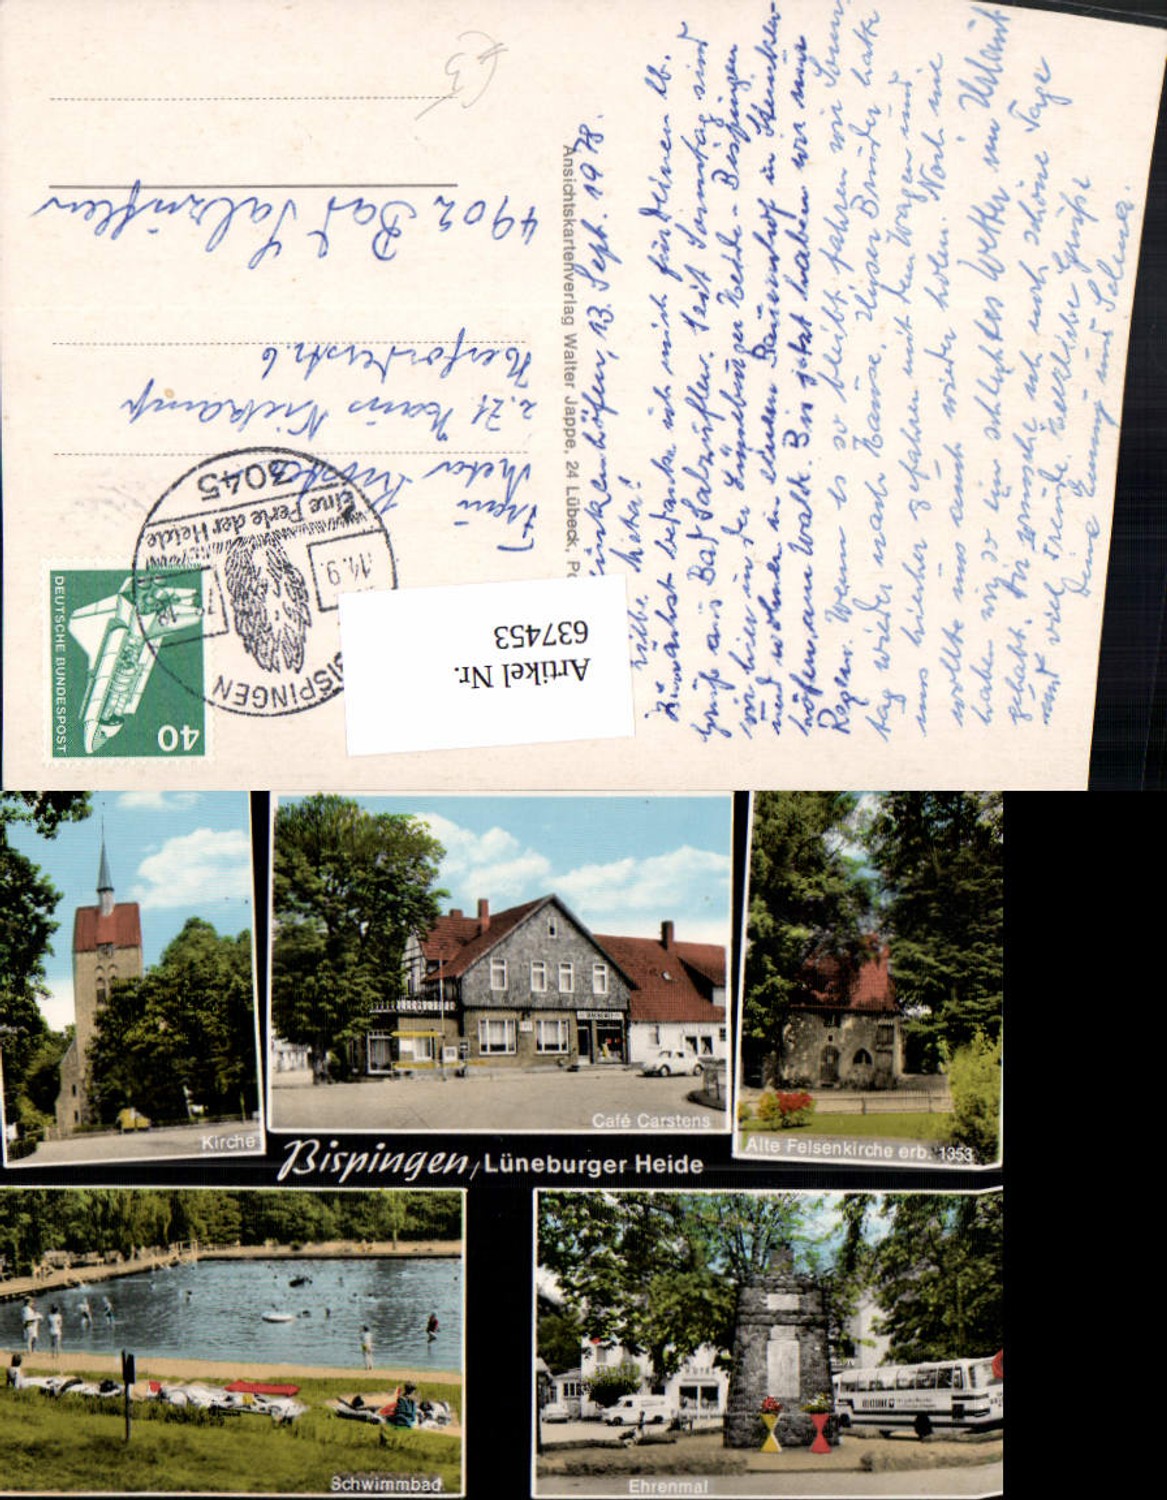 Steinkenhöfen, 13. Sept. 1978.
Liebe Meta!
Zunächst bedanke ich mich für Deinen lb.
Gruß aus Bad Salzuflen. Seit Sonntag sind
wir hier in der Lüneburger Heide - Bispingen
und wohnen in einem Bauernhof in Steinken-
höfen am Walde. Bis jetzt haben wir nur
Regen. Wenn es so bleibt fahren wir Sonn-
tag wieder nach Hause. Unser Bruder hatte
uns hierher gefahren mit dem Wagen und
wollte uns auch wieder holen. Noch nie
haben wir so ein schlechtes Wetter im Urlaub
gehabt. Dir wünsche ich noch schöne Tage
und viel Freude. Herzliche Grüße
Deine Emmy und Selma.
Ansichtskartenverlag Walter Jappe, 24 Lübeck, Po
Frau
Meta
z. Zt. Haus Niekamp
Herforderstr. 6
4902 Bad Salzuflen
3045
Eine Perle der Heide
14.9.
BISPINGEN
DEUTSCHE BUNDESPOST
40
Artikel Nr.
637453
Kirche
Café Carstens
Alte Felsenkirche erb. 1353
Bispingen, Lüneburger Heide
Schwimmbad
Ehrenmal